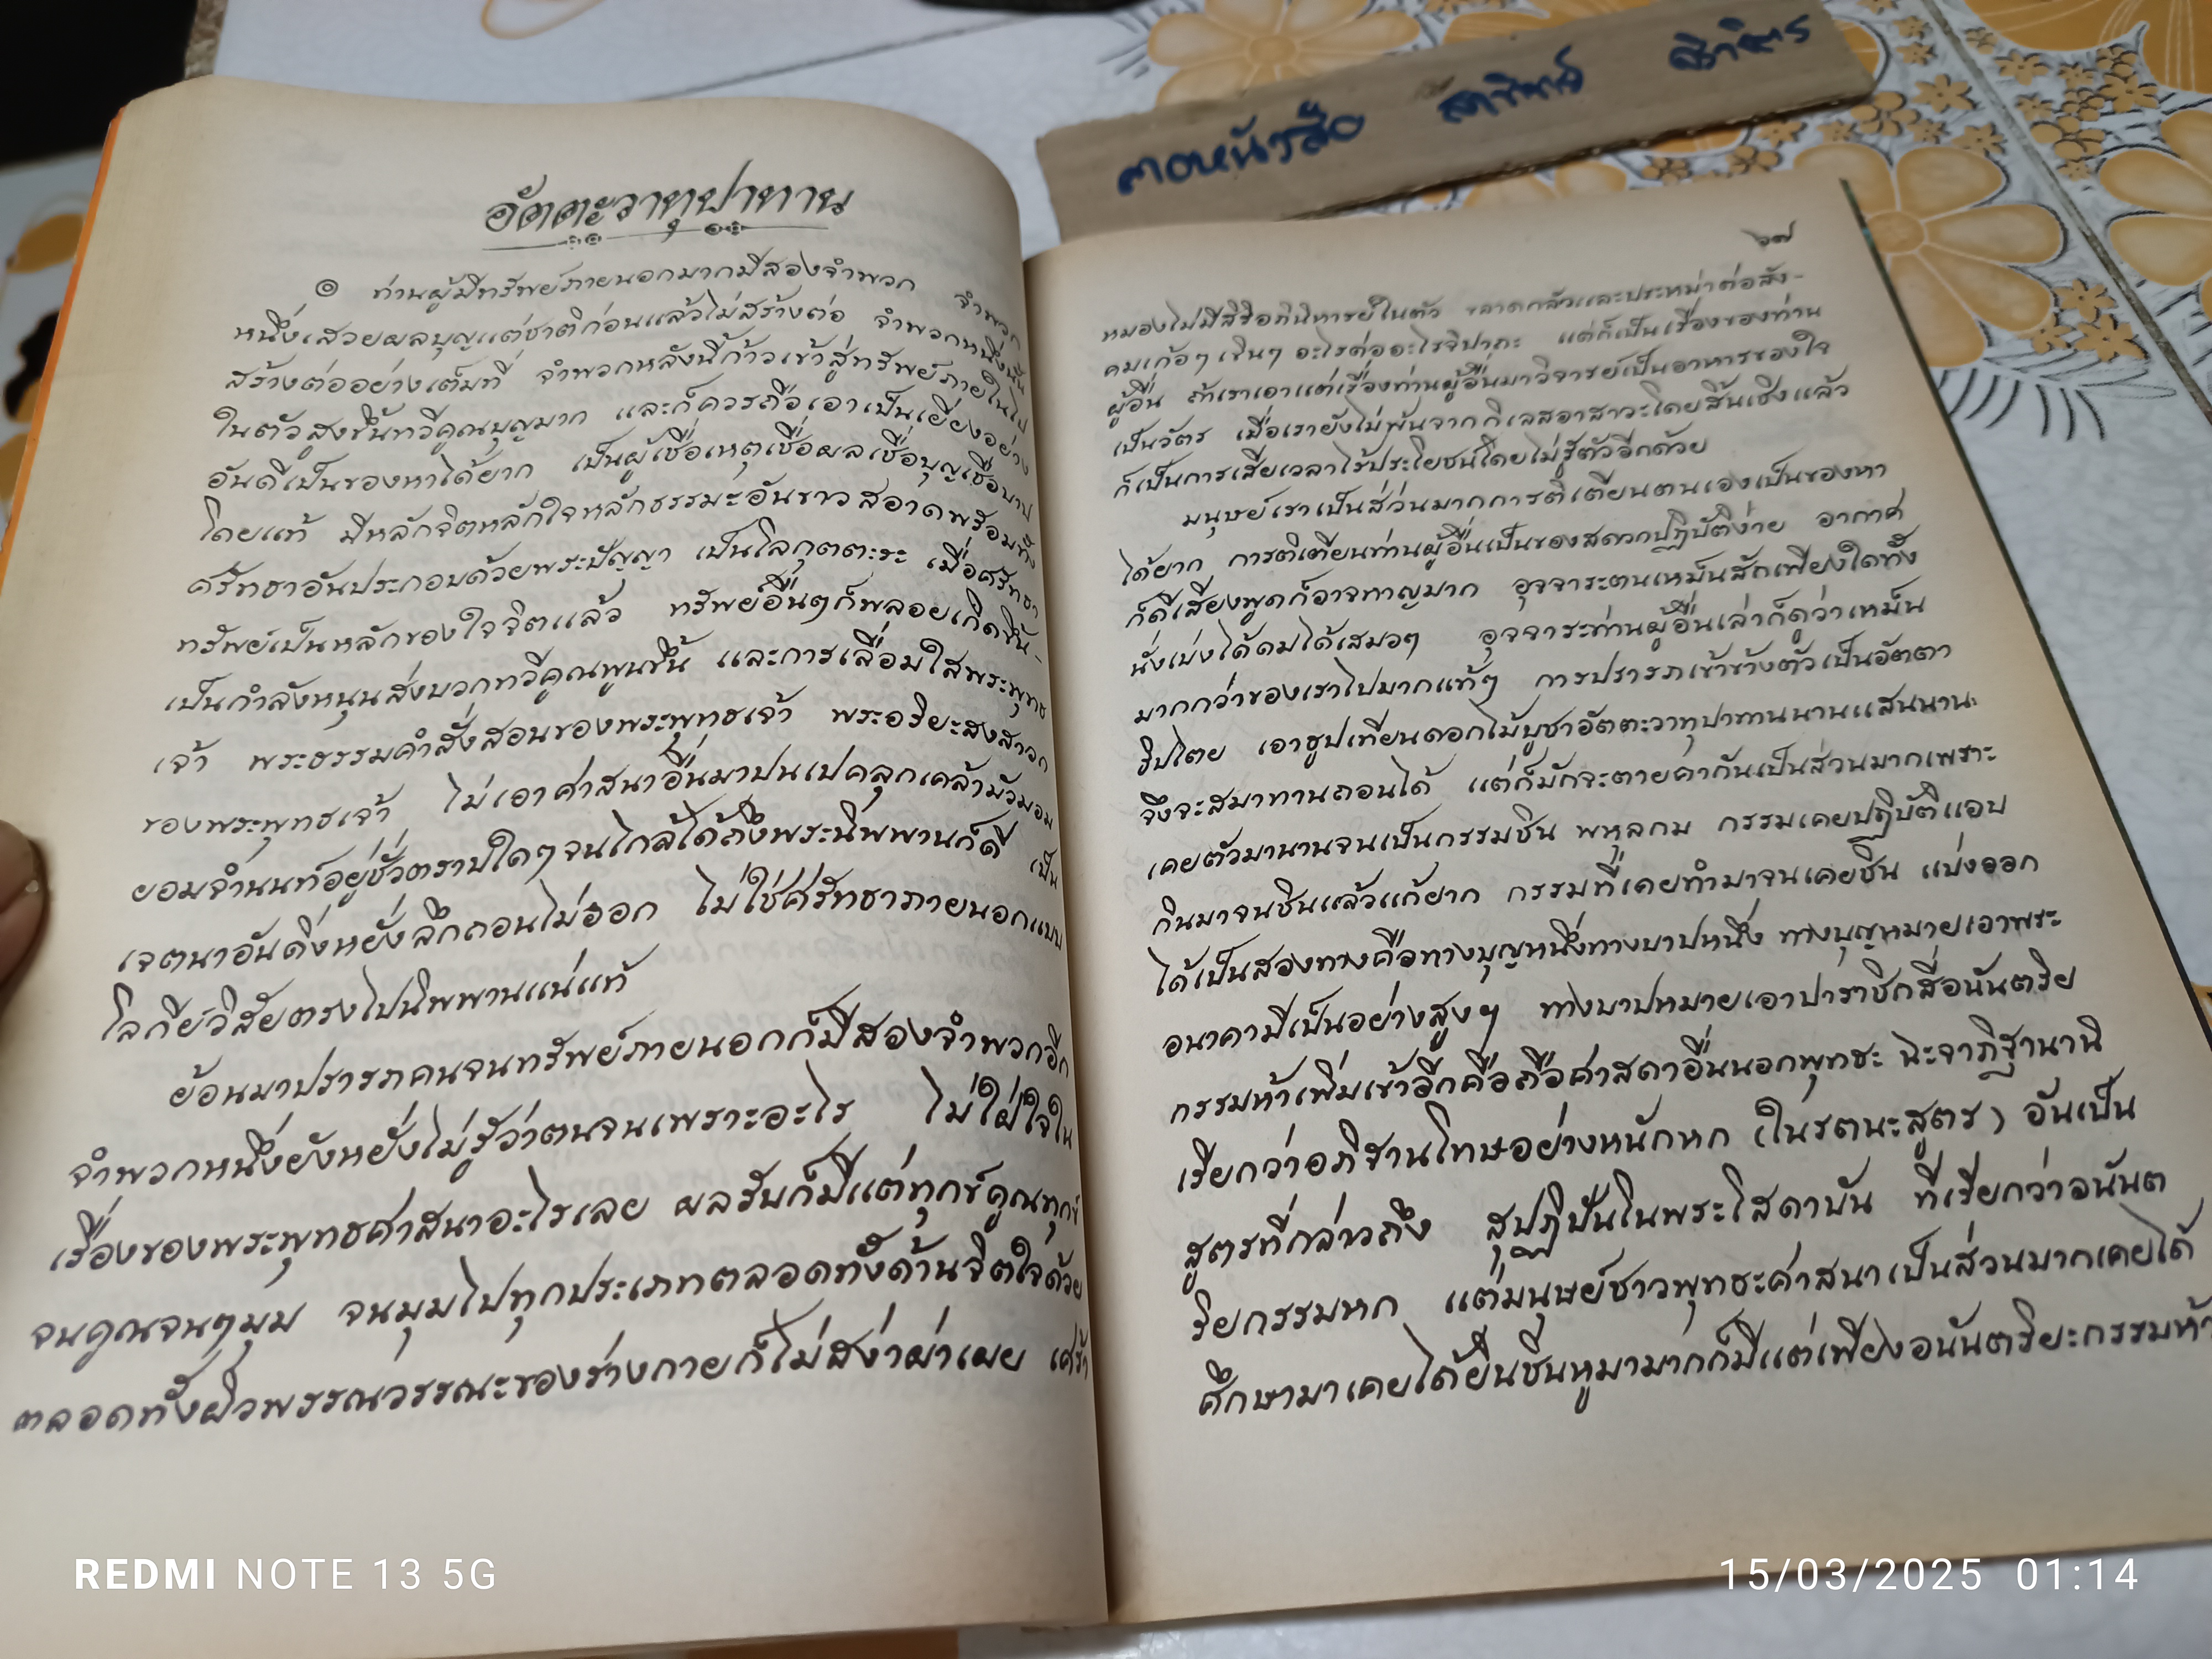 อัตตะวาทุปาทาน
๏ ท่านผู้มีทรัพย์ภายนอกมากมีสองจำพวก จำพวก
หนึ่งเสวยผลบุญแต่ชาติก่อนแล้วไม่สร้างต่อ จำพวกหนึ่งนั้น
สร้างต่ออย่างเต็มที่ จำพวกหลังนี้ก้าวเข้าสู่ทรัพย์ภายในไป
ในตัวสูงขึ้นทวีคูณบุญมาก และก็ควรถือเอาเป็นเยี่ยงอย่าง
อันดีเป็นของหาได้ยาก เป็นผู้เชื่อเหตุเชื่อผลเชื่อบุญเชื่อบาป
โดยแท้ มีหลักจิตหลักใจหลักธรรมะอันขาวสอาดพร้อมทั้ง
ศรัทธาอันประกอบด้วยพระปัญญา เป็นโลกุตตะระ เมื่อศรัทธา
ทรัพย์เป็นหลักของใจจิตแล้ว ทรัพย์อื่นๆก็พลอยเกิดขึ้น-
เป็นกำลังหนุนส่งบวกทวีคูณพูนขึ้น และการเลื่อมใสพระพุทธ
เจ้า พระธรรมคำสั่งสอนของพระพุทธเจ้า พระอริยะสงสาวก
ของพระพุทธเจ้า ไม่เอาศาสนาอื่นมาปนเปคลุกเคล้ามัวมอม
ยอมจำนนท์อยู่ชั่วตราบใดๆจนใกล้ได้ถึงพระนิพพานก็ดี เป็น
เจตนาอันดิ่งหยั่งลึกถอนไม่ออก ไม่ใช่ศรัทธาภายนอกแบบ
โลกีย์วิสัยตรงไปนิพพานแน่แท้
ย้อนมาปรารภคนจนทรัพย์ภายนอกก็มีสองจำพวกอีก
จำพวกหนึ่งยังหยั่งไม่รู้ว่าตนจนเพราะอะไร ไม่ใฝ่ใจใน
เรื่องของพระพุทธศาสนาอะไรเลย ผลรับก็มีแต่ทุกข์คูณทุกข์
จนคูณจนๆมุม จนมุมไปทุกประเภทตลอดทั้งด้านจิตใจด้วย
ตลอดทั้งผิวพรรณวรรณะของร่างกายก็ไม่สง่าผ่าเผย เศร้า
๖๗
หมองไม่มีสิริอภินิหารย์ในตัว ขลาดกลัวและประหม่าต่อสัง-
คมเก้อๆ เขินๆ อะไรต่ออะไรจิปาถะ แต่ก็เป็นเรื่องของท่าน
ผู้อื่น ถ้าเราเอาแต่เรื่องท่านผู้อื่นมาวิจารย์เป็นอาหารของใจ
เป็นวัตร เมื่อเรายังไม่พ้นจากกิเลสอาสาวะโดยสิ้นเชิงแล้ว
ก็เป็นการเสียเวลาไร้ประโยชน์โดยไม่รู้ตัวอีกด้วย
มนุษย์เราเป็นส่วนมากการติเตียนตนเองเป็นของหา
ได้ยาก การติเตียนท่านผู้อื่นเป็นของสดวกปฏิบัติง่าย อากาศ
ก็ดีเสียงพูดก็อาจหาญมาก อุจจาระตนเหม็นสักเพียงใดทั้ง
นั่งเบ่งได้ดมได้เสมอๆ อุจจาระท่านผู้อื่นเล่าก็ดูว่าเหม็น
มากกว่าของเราไปมากแท้ๆ การปรารภเข้าข้างตัวเป็นอัตตา
ธิปไตย เอาธูปเทียนดอกไม้บูชาอัตตะวาทุปาทานนานแสนนาน
จึงจะสมาทานถอนได้ แต่ก็มักจะตายคากันเป็นส่วนมากเพราะ
เคยตัวมานานจนเป็นกรรมชิน พหุลกม กรรมเคยปฏิบัติแอบ
กินมาจนชินแล้วแก้ยาก กรรมที่เคยทำมาจนเคยชิน แบ่งออก
ได้เป็นสองทางคือทางบุญหนึ่งทางบาปหนึ่ง ทางบุญหมายเอาพระ
อนาคามีเป็นอย่างสูงๆ ทางบาปหมายเอาปาราชิกสี่อนันตริย
กรรมห้าเพิ่มเข้าอีกคือถือศาสดาอื่นนอกพุทธะ ฉะจาภิฐานานิ
เรียกว่าอภิฐานโทษอย่างหนักหก (ในรตนะสูตร) อันเป็น
สูตรที่กล่าวถึง สุปฏิปันในพระโสดาบัน ที่เรียกว่าอนันต
ริยกรรมหก แต่มนุษย์ชาวพุทธะศาสนาเป็นส่วนมากเคยได้
ศึกษามาเคยได้ยินชินหูมามากก็มีแต่เพียงอนันตริยะกรรมห้า
REDMI NOTE 13 5G
15/03/2025 01:14